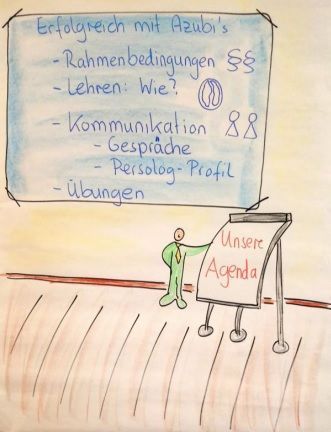 Erfolgreich mit Azubi's
- Rahmenbedingungen §§
- Lehren: Wie?
- Kommunikation
- Gespräche
- Persolog-Profil
- Übungen
Unsere
Agenda